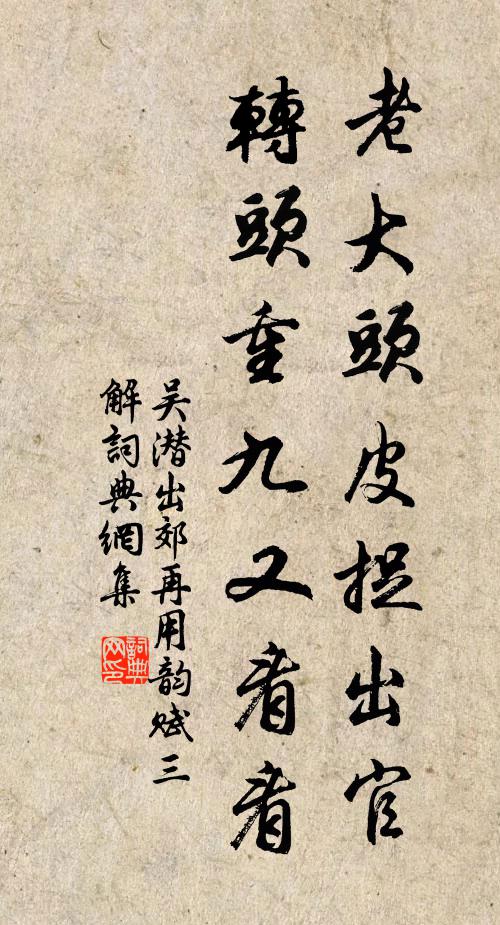 老大頭皮捉出官
轉頭重九又看看
吴潜出郊再用韵赋三
解詞典網集
詞典网印